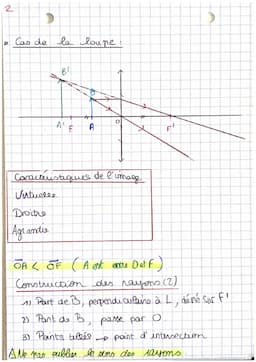 2
• Cas de la loupe :
B'
B
A' F A O F'
Caractéristiques de l'image
Virtuelle
Droite
Agrandie
OA < OF ( A est entre O et F )
Construction des rayons (2)
1) Part de B, perpendiculaire à L, dévié sur F'
2) Part de B, passe par O
3) Pointillés → point d'intersection
⚠ Ne pas oublier le sens des rayons